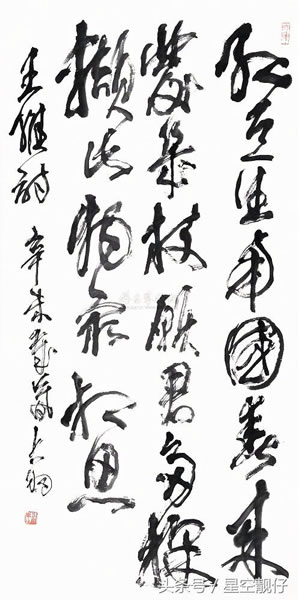 紅豆生南國春来
發幾枝願君多採
擷此物最相思
王維詩 辛未
头条号 / 星空靓仔